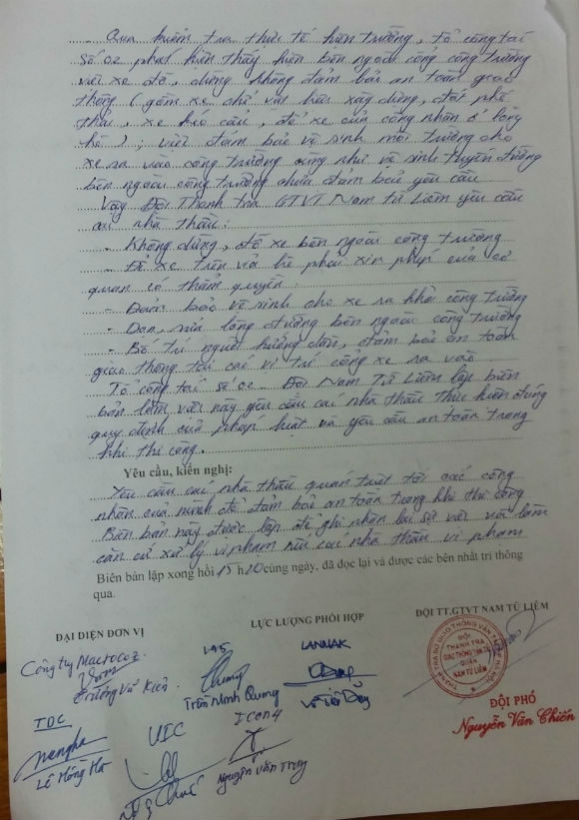 Qua kiểm tra thực tế hiện trường, tổ công tác
số 02 phát hiện thấy hiện bên ngoài cổng công trường
việc xe đỗ, dừng không đảm bảo an toàn giao
thông (gồm xe chở vật liệu xây dựng, đất phế
thải, xe hút cẩu, để xe của công nhân ở lòng
hè); việc đảm bảo vệ sinh môi trường cho
xe ra vào công trường cũng như vệ sinh tuyến đường
bên ngoài công trường chưa đảm bảo yêu cầu
Vậy Đội Thanh tra GTVT Nam Từ Liêm yêu cầu
các nhà thầu:
- Không dừng, đỗ xe bên ngoài công trường
- Để xe trên vỉa hè phải xin phép của cơ
quan có thẩm quyền.
- Đảm bảo vệ sinh cho xe ra khỏi công trường
- Dọn, rửa lòng đường bên ngoài công trường
- Bố trí người hướng dẫn, đảm bảo an toàn
giao thông tại các vị trí cổng xe ra vào
Tổ công tác số 02 Đội Nam Từ Liêm lập biên
bản làm việc này yêu cầu các nhà thầu thực hiện đúng
quy định của pháp luật và yêu cầu an toàn trong
khi thi công.
Yêu cầu, kiến nghị:
Yêu cầu các nhà thầu quán triệt tới các công
nhân của mình để đảm bảo an toàn trong khi thi công
Biên bản này được lập để ghi nhận lại sự việc và làm
căn cứ xử lý vi phạm nếu các nhà thầu vi phạm
Biên bản lập xong hồi 15 h 20 cùng ngày, đã đọc lại và được các bên nhất trí thông
qua.
ĐẠI DIỆN ĐƠN VỊ
LỰC LƯỢNG PHỐI HỢP
ĐỘI TT.GTVT NAM TỪ LIÊM
Công ty Macrocoz
Trương Văn Kiên
195
Trần Minh Quang
LANMAK
THANH TRA SỞ GIAO THÔNG VẬN TẢI
ĐỘI
THANH TRA
GIAO THÔNG VẬN TẢI
QUẬN
NAM TỪ LIÊM
ĐỘI PHÓ
Nguyễn Văn Chiến
TDC
Lê Hồng Hà
UIC
Icon4
Nguyễn Văn Thuy